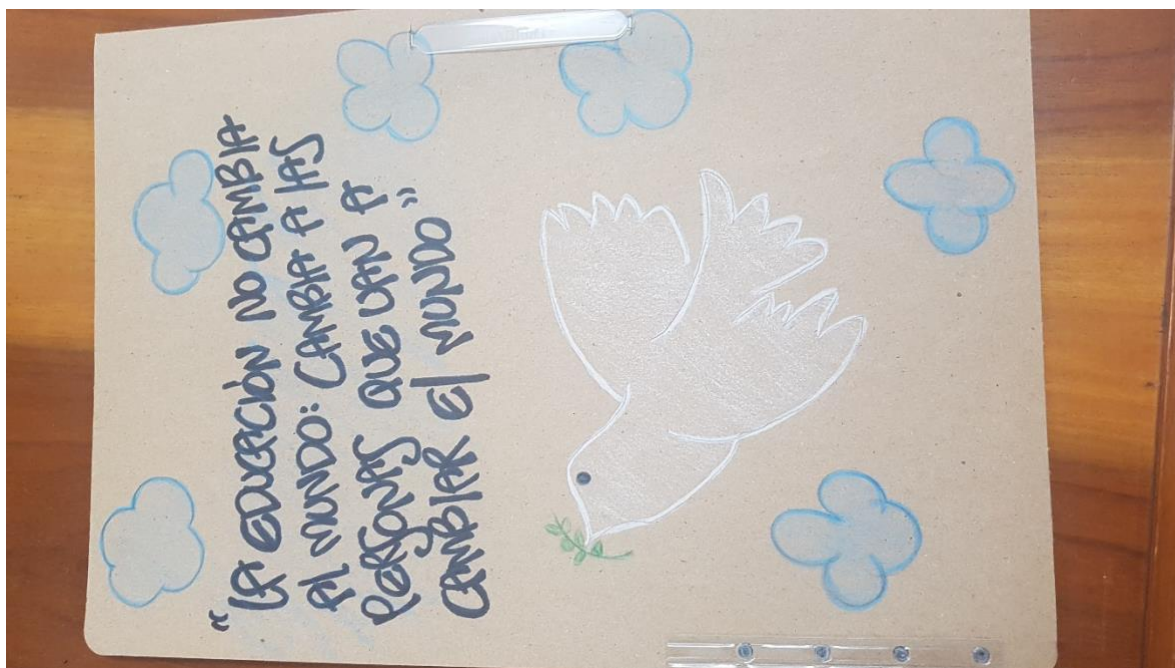 "LA EDUCACIÓN NO CAMBIA
AL MUNDO: CAMBIA A LAS
PERSONAS QUE VAN A
CAMBIAR El MUNDO"